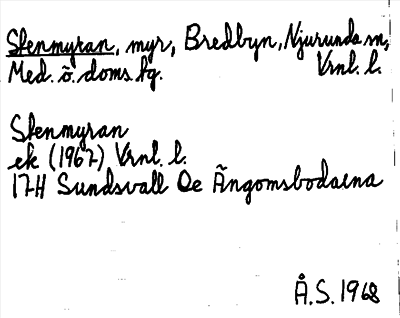 Stenmyran, myr, Bredbyn, Njurunda sn,
Med. ö. doms hg. Vrnl. l.
Stenmyran
ek (1967) Vrnl. l.
17H Sundsvall Oe Ängomsbodarna
Å.S. 1968